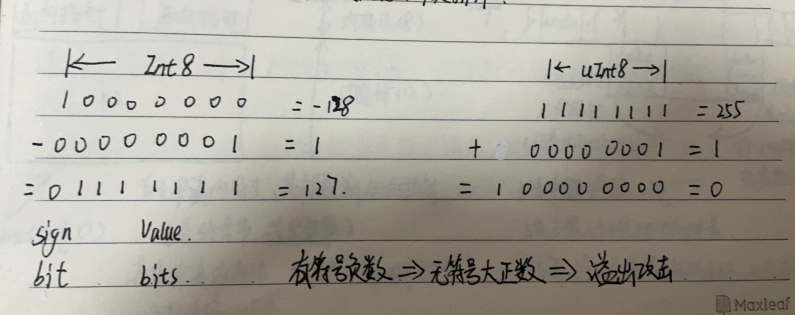 |← Int8 →| |← uInt8 →|
1 0 0 0 0 0 0 0 = -128 1 1 1 1 1 1 1 1 = 255
- 0 0 0 0 0 0 0 1 = 1 + 0000 0001 = 1
= 0 1 1 1 1 1 1 1 = 127. = 1 0000 0000 = 0
sign Value.
bit bits. 有符号负数 => 无符号大正数 => 溢出攻击
Maxleaf